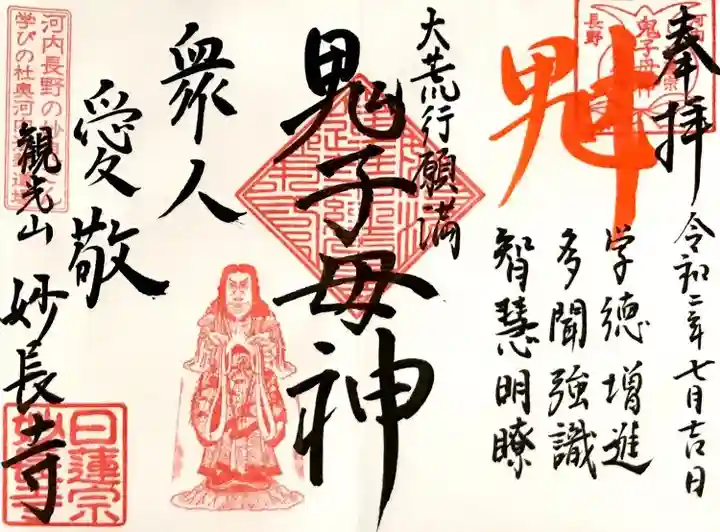 奉拝
令和二年七月吉日
鬼子母神
長野
魁
学徳増進
多聞強識
智慧明瞭
大荒行願満
鬼子母神
衆人
愛敬
河内長野の妙
学びの社奥河
観光山
妙長寺
日蓮宗
妙長寺